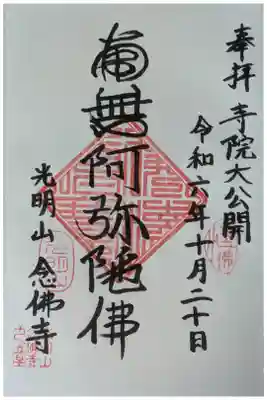 奉拝 寺院大公開
令和六年十月二十日
南無阿弥陀佛
光明山 念佛寺